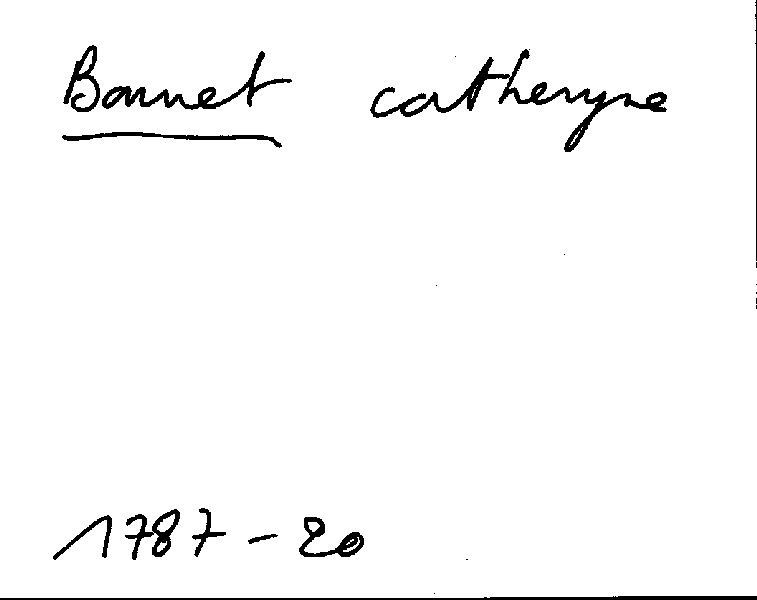 Bonnet catheryne
1787 - 20